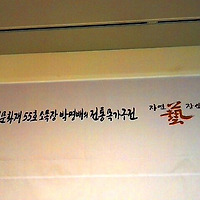 문화재 55호 소목장 박명배의 전통목가구전
자연 藝